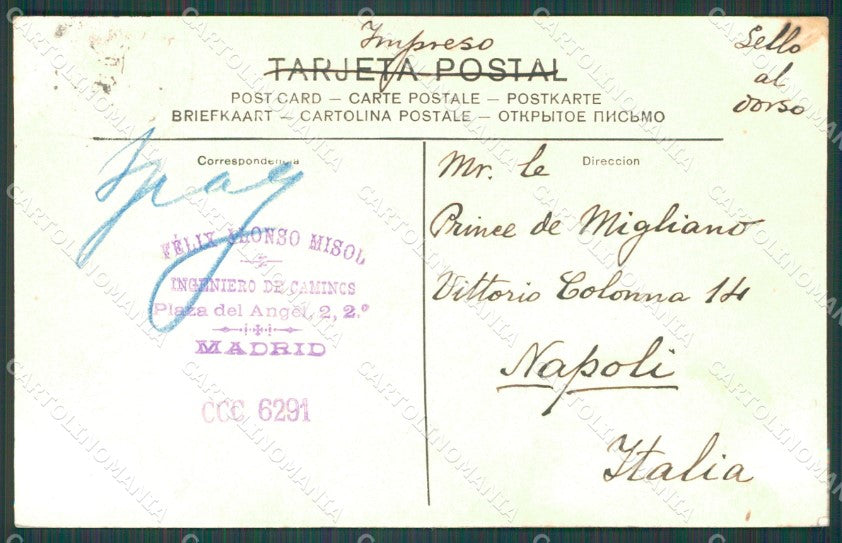 Impreso
Sello
al
dorso
TARJETA POSTAL
POST CARD — CARTE POSTALE — POSTKARTE
BRIEFKAART — CARTOLINA POSTALE — ОТКРЫТОЕ ПИСЬМО
Correspondencia
Direccion
FÉLIX ALONSO MISOL
INGENIERO DE CAMINOS
Plaza del Angel, 2, 2.º
MADRID
CCC 6291
Mr. le
Prince de Migliano
Vittorio Colonna 14
Napoli
Italia
CARTOLINOMANIA